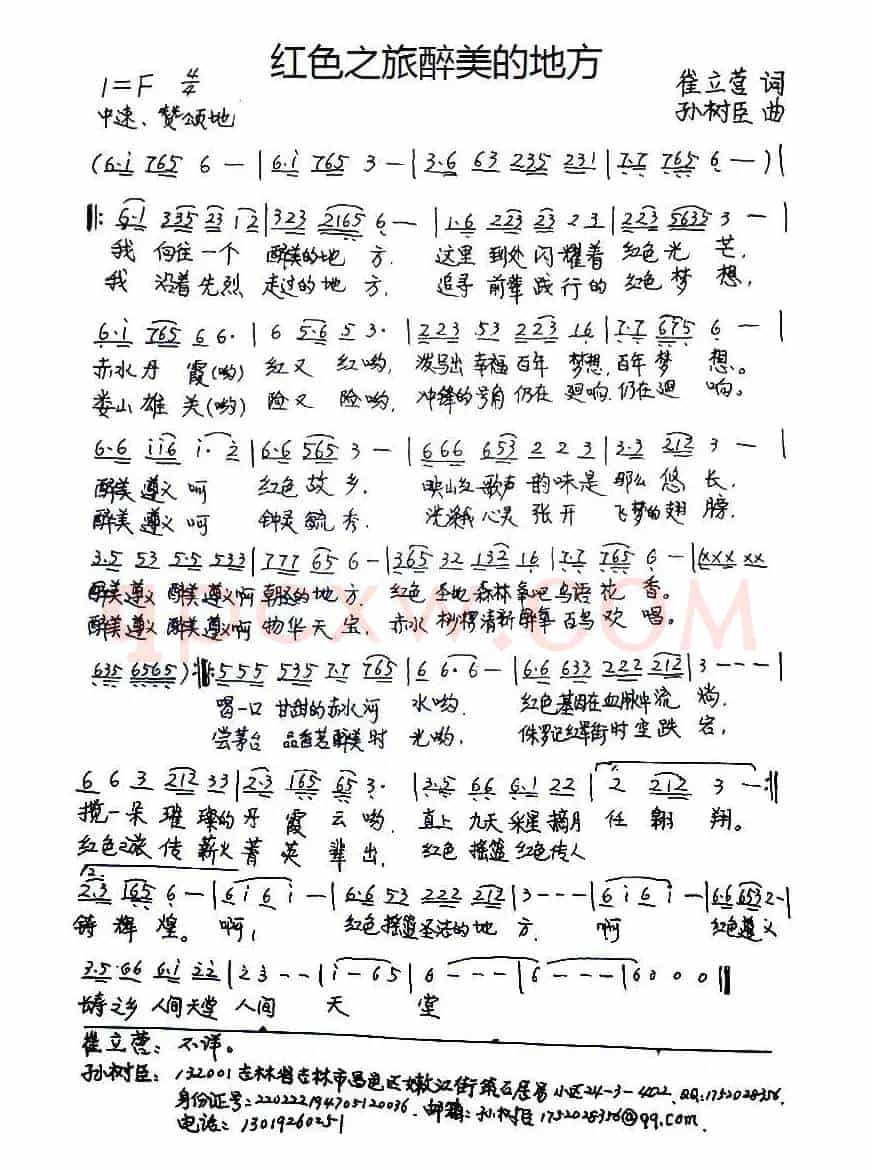 红色之旅醉美的地方
1=F 4/4
崔立营 词
中速、赞颂地
孙树臣 曲
(6·i 765 6 — | 6·i 765 3 — | 3·6 63 235 231 | 7·7 765 6 — ) |
‖: 6·1 335 23 12 | 323 2165 6 — | 1·6 223 23 23 | 223 5635 3 — |
我 向往一个 醉美的地 方, 这里 到处闪耀着 红色光 芒,
我 沿着先烈 走过的地 方, 追寻 前辈践行的 红色梦 想,
6·i 765 6 6· | 6 5·6 5 3· | 223 53 223 16 | 7·7 675 6 — |
赤水丹 霞(哟) 红又 红哟, 泼写出幸福百年 梦想,百年梦 想。
娄山雄 关(哟) 险又 险哟, 冲锋的号角仍在 迴响,仍在迴 响。
6·6 ii6 i·2 | 6·6 565 3 — | 666 653 2 2 3 | 3·3 212 3 — |
醉美遵义呵 红色故 乡, 映山红歌声 韵味是 那么悠 长,
醉美遵义呵 钟灵毓 秀, 洗涤我心灵 张开 飞梦的翅 膀,
3·5 53 5·5 533 | 777 65 6 — | 365 32 132 16 | 7·7 765 6 — | (xxx xx
醉美遵义 醉美遵义啊 朝圣的地方, 红色圣地森林氧吧鸟语花 香。
醉美遵义 醉美遵义啊 物华天 宝, 赤水桫椤清新醉氧百鸟欢 唱。
635 6565 ) :‖: 555 535 7·7 765 | 6 6· 6 — | 6·6 633 222 212 | 3 - - - |
喝一口 甘甜的赤水河 水哟, 红色基因在血脉中流 淌,
尝茅台 品香茗醉美时 光哟, 侏罗记红军街时空跌 宕,
6 6 3 212 33 | 2·3 165 65 3· | 3·5 66 6·1 22 | 2 212 3 — :‖
揽一朵 璀璨的丹 霞云哟, 直上九天采星摘月 任翱 翔。
红色之旅传 薪火菁英 辈出, 红色 摇篮 红色传人
2.
2·3 165 6 — | 6 i 6 i — | 6·6 53 222 212 | 3 - - - | 6 i 6 i — | 6·6 653 2 - |
铸辉 煌。 啊, 红色摇篮圣洁的地 方, 啊 红色遵义
3·5·66 6·i 22 | 2 3 - - | i - 65 | 6 - - - | 6 - - - | 6 0 0 0 ‖
诗之乡 人间天堂 人间 天 堂
崔立营:不详。
孙树臣:132001吉林省吉林市昌邑区嫩江街筑石居易小区24-3-402. QQ:1752028356.
身份证号:220222194705120036. 邮箱:孙树臣1752028356@qq.com.
电话:13019260251
qpcxw.com